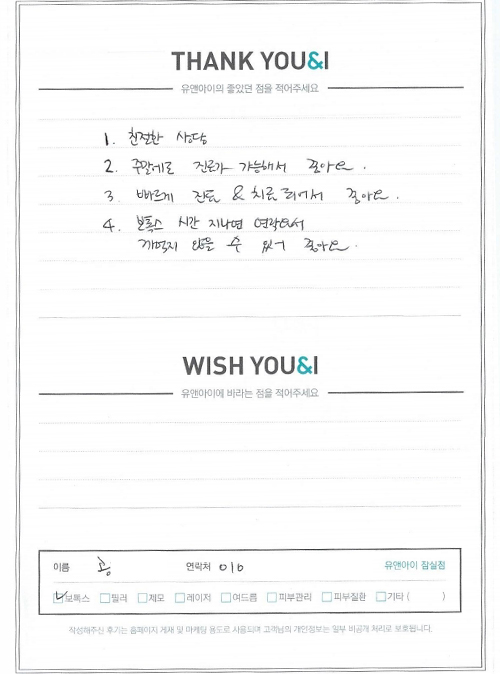 THANK YOU&I
유앤아이의 좋았던 점을 적어주세요
1. 친절한 상담
2. 주말에도 진료가 가능해서 좋아요.
3. 빠르게 진료 & 치료 되어서 좋아요.
4. 보톡스 시간 지나면 연락와서
까먹지 않을 수 있어 좋아요.
WISH YOU&I
유앤아이에 바라는 점을 적어주세요
이름 공 연락처 010 유앤아이 잠실점
보톡스 필러 제모 레이저 여드름 피부관리 피부질환 기타 ( )
작성해주신 후기는 홈페이지 게재 및 마케팅 용도로 사용되며 고객님의 개인정보는 일부 비공개 처리로 보호됩니다.